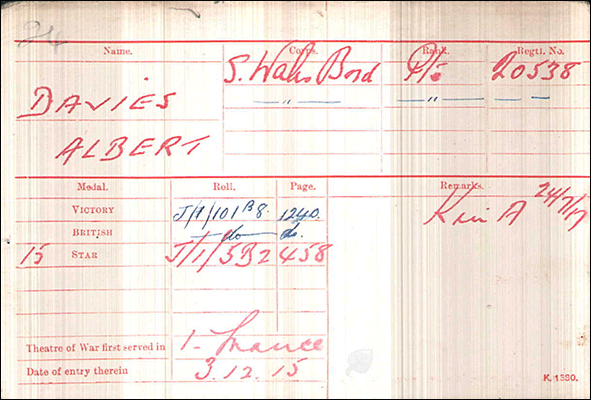 Name. Corps. Rank. Regtl. No.
S. Wales Bord Pte 20538
DAVIES — " — — " — — —
ALBERT
Medal. Roll. Page. Remarks.
VICTORY J/1/101 B8. 1240. Kin A 24/7/17
BRITISH — do — do.
15 STAR J/1/5B2 458
Theatre of War first served in 1- France
Date of entry therein 3.12.15
K. 1380.